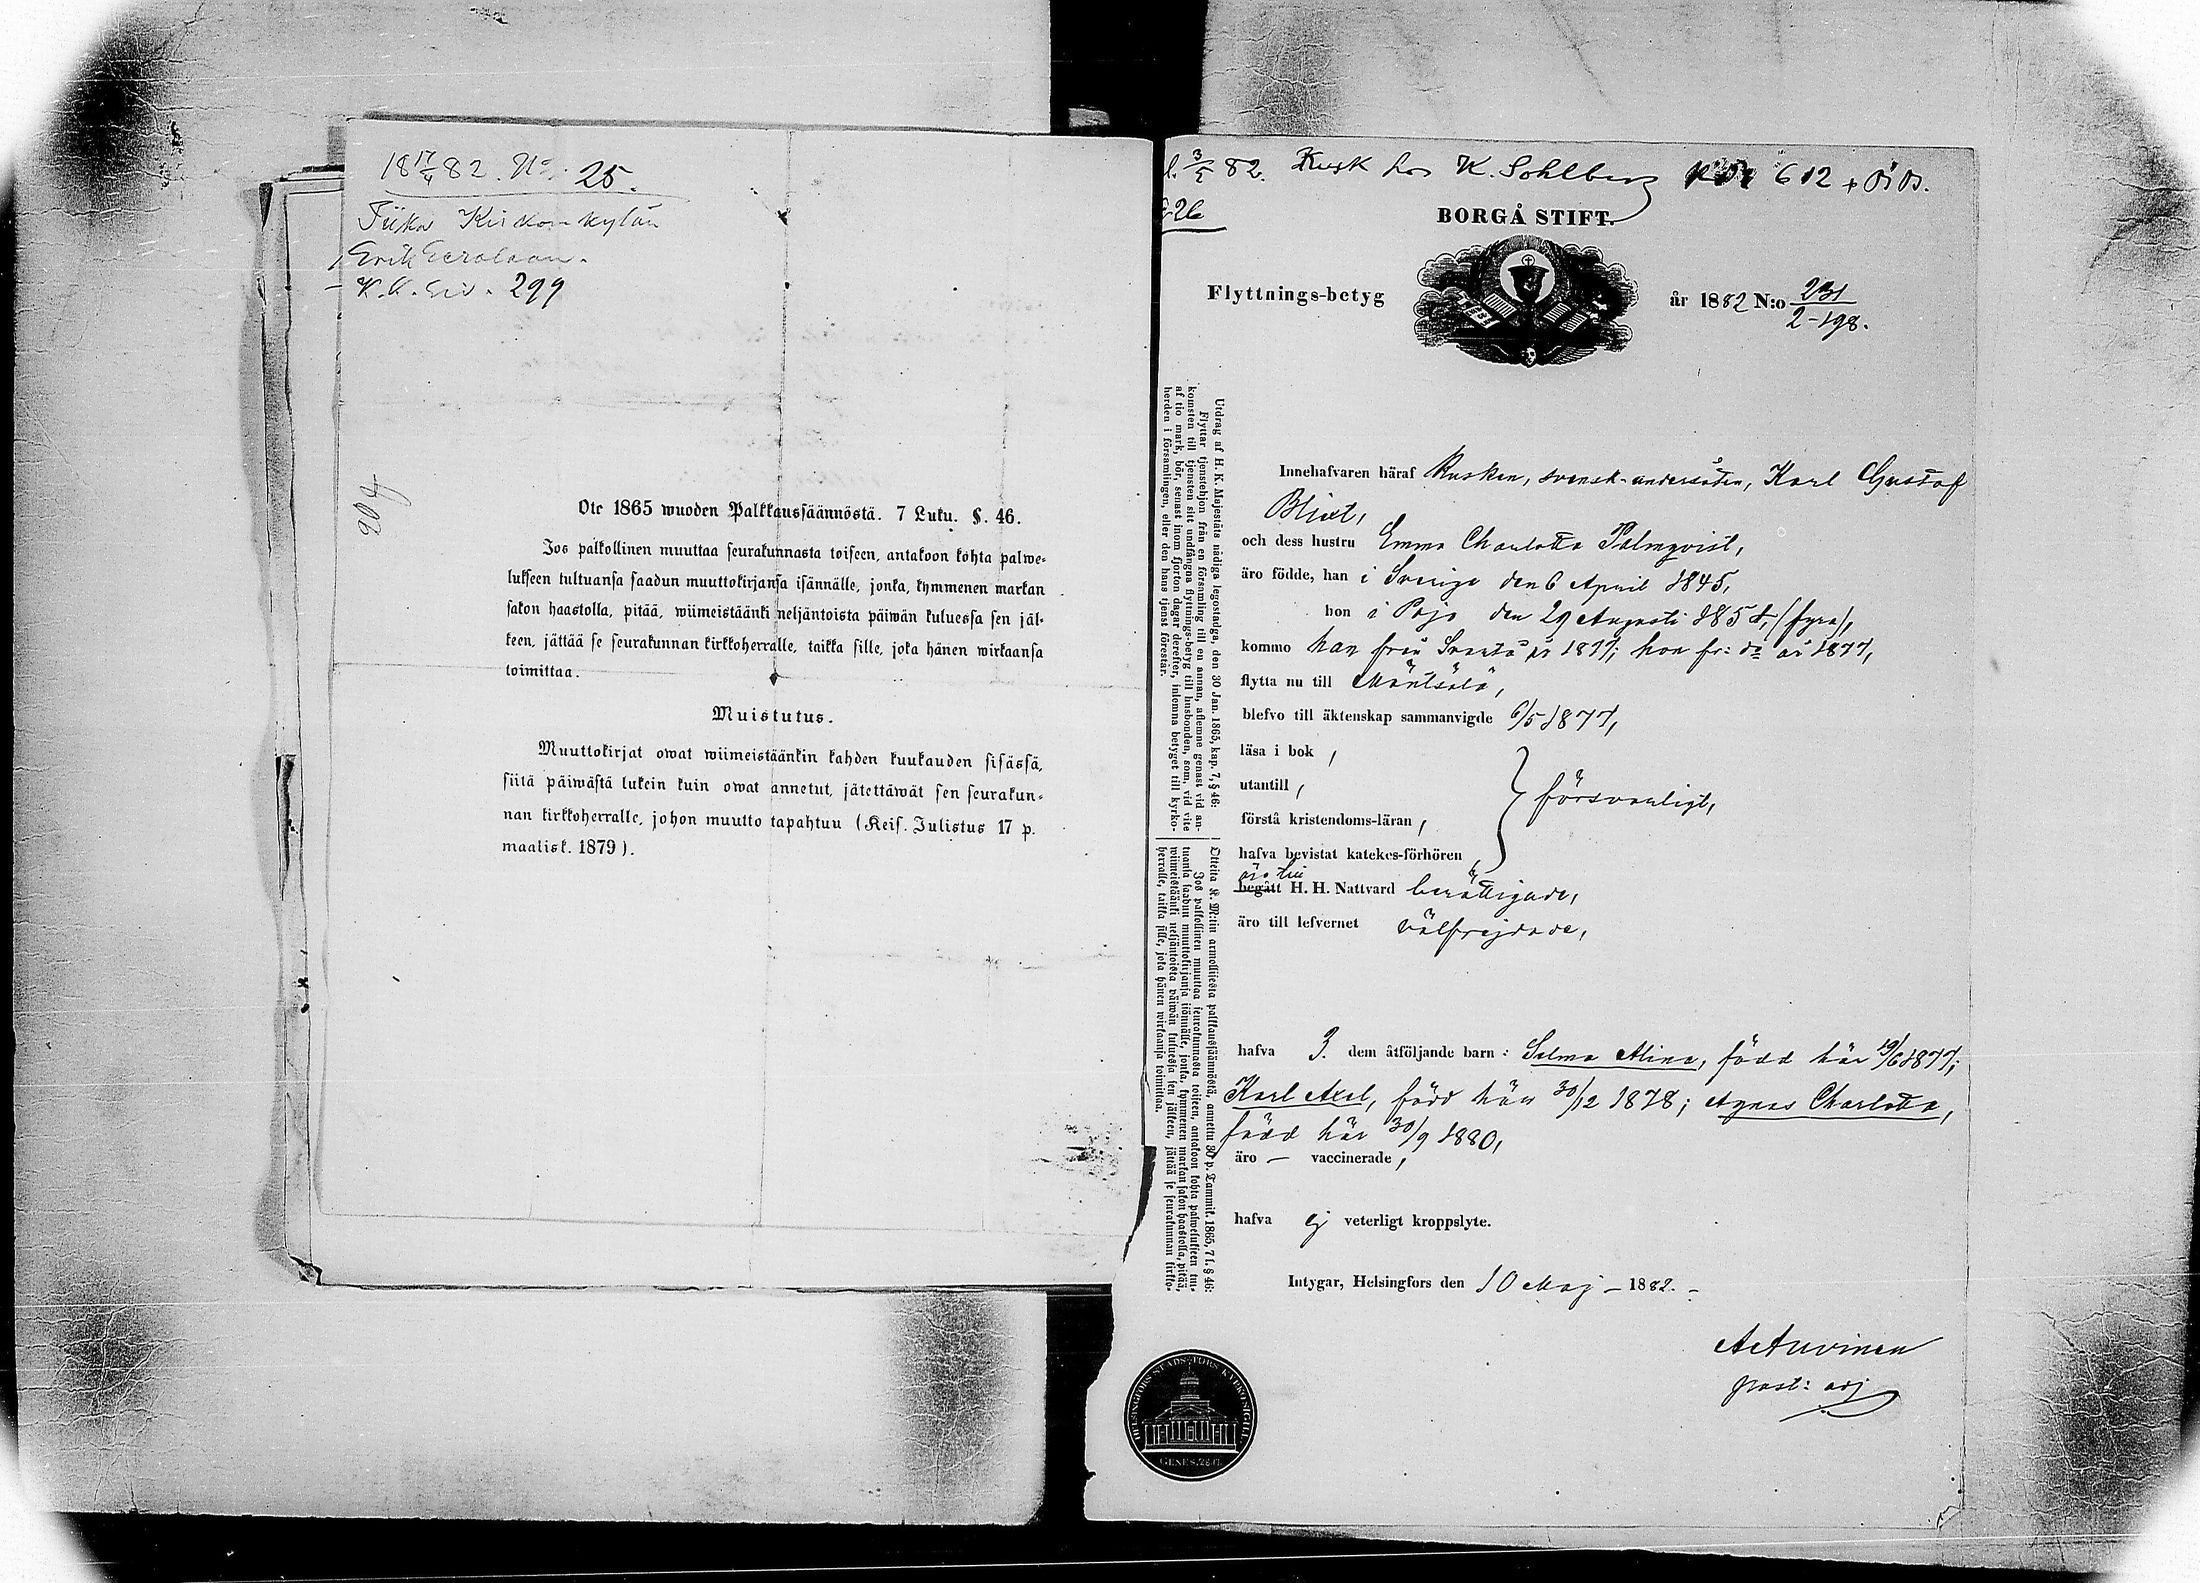 18 17/4 82. No. 25.
Kirkonkylän
K. K. 299
204
Ote 1865 wuoden Palkkaussäännöstä. 7 Luku. §. 46.
Jos palkollinen muuttaa seurakunnasta toiseen, antakoon kohta palwe-
lukseen tultuansa saadun muuttokirjansa isännälle, jonka, kymmenen markan
sakon haastolla, pitää, wiimeistäänki neljäntoista päiwän kuluessa sen jäl-
keen, jättää se seurakunnan kirkkoherralle, taikka sille, joka hänen wirkaansa
toimittaa.
Muistutus.
Muuttokirjat owat wiimeistäänkin kahden kuukauden sisässä,
siitä päiwästä lukein kuin owat annetut, jätettäwät sen seurakun-
nan kirkkoherralle, johon muutto tapahtuu (Keis. Julistus 17 p.
maalisk. 1879).
82. Kusk hos K. Sohlberg 612
26
BORGÅ STIFT.
Flyttnings-betyg
år 1882 N:o 231
2-198.
Utdrag af H. K. Majestäts nådiga legostadga, den 30 Jan. 1865, kap. 7, § 46:
Flyttar tjenstehjon från en församling till en annan, aflemne genast vid an-
komsten till tjensten sitt undfångna flyttnings-betyg till husbonden, som, vid vite
af tio mark, bör, senast inom fjorton dagar derefter, inlemna betyget till kyrko-
herden i församlingen, eller den hans tjenst förestår.
Otteita K. M:tin armollisesta palkkaussäännöstä, annettu 30 p. Tammik. 1865, 7 l. § 46:
Jos palkollinen muuttaa seurakunnasta toiseen, antakoon kohta palwelukseen tul-
tuansa saadun muuttokirjansa isännälle, jonka, kymmenen markan sakon haastolla, pitää,
wiimeistäänki neljäntoista päiwän kuluessa sen jälkeen, jättää se seurakunnan kirkko-
herralle, taikka sille, joka hänen wirkaansa toimittaa.
Innehafvaren häraf Kusken, svensk undersåten, Karl Gustaf
Blixt,
och dess hustru Emma Charlotta Palmqvist,
äro födde, han i Sverige den 6 April 1845,
hon i Pojo den 29 Augusti 1854, (fyra),
kommo han från Svartå år 1877; hon fr: do år 1877,
flytta nu till Mäntsälä,
blefvo till äktenskap sammanvigde 6/5 1877,
läsa i bok,
utantill,
förstå kristendoms-läran,
försvarligt,
hafva bevistat katekes-förhören,
äro till
begått H. H. Nattvard berättigade,
äro till lefvernet välfrejdade,
hafva 3. dem åtföljande barn: Selma Alina, född här 19/6 1877;
Karl Axel, född här 30/12 1878; Agnes Charlotta,
född här 30/9 1880,
äro — vaccinerade,
hafva ej veterligt kroppslyte.
Intygar, Helsingfors den 10 Maj — 1882. —
A Auvinen
past: adj
HELSINGFORS STADS KYRKO SIGILL.
GENES. 28.17.